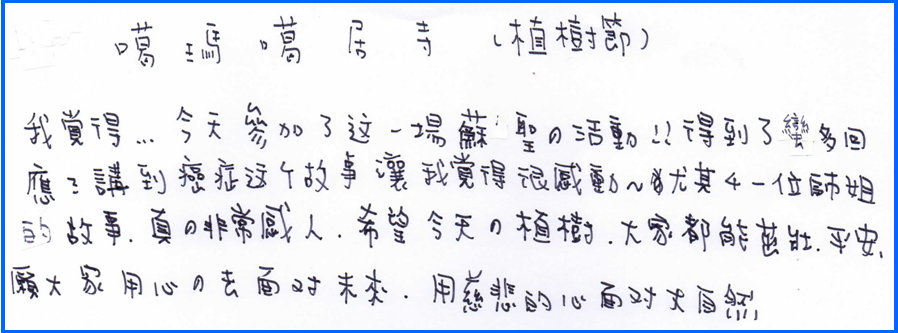 噶瑪噶居寺（植樹節）
我覺得…今天參加了这一場蘇聖の活動!!得到了蠻多回
應:講到癌症这个故事讓我覺得很感動~尤其4一位師姐
的故事.真の非常感人.希望今天の植樹.大家都能茁壯.平安,
願大家用心の去面对未來.用慈悲的心面对大自然